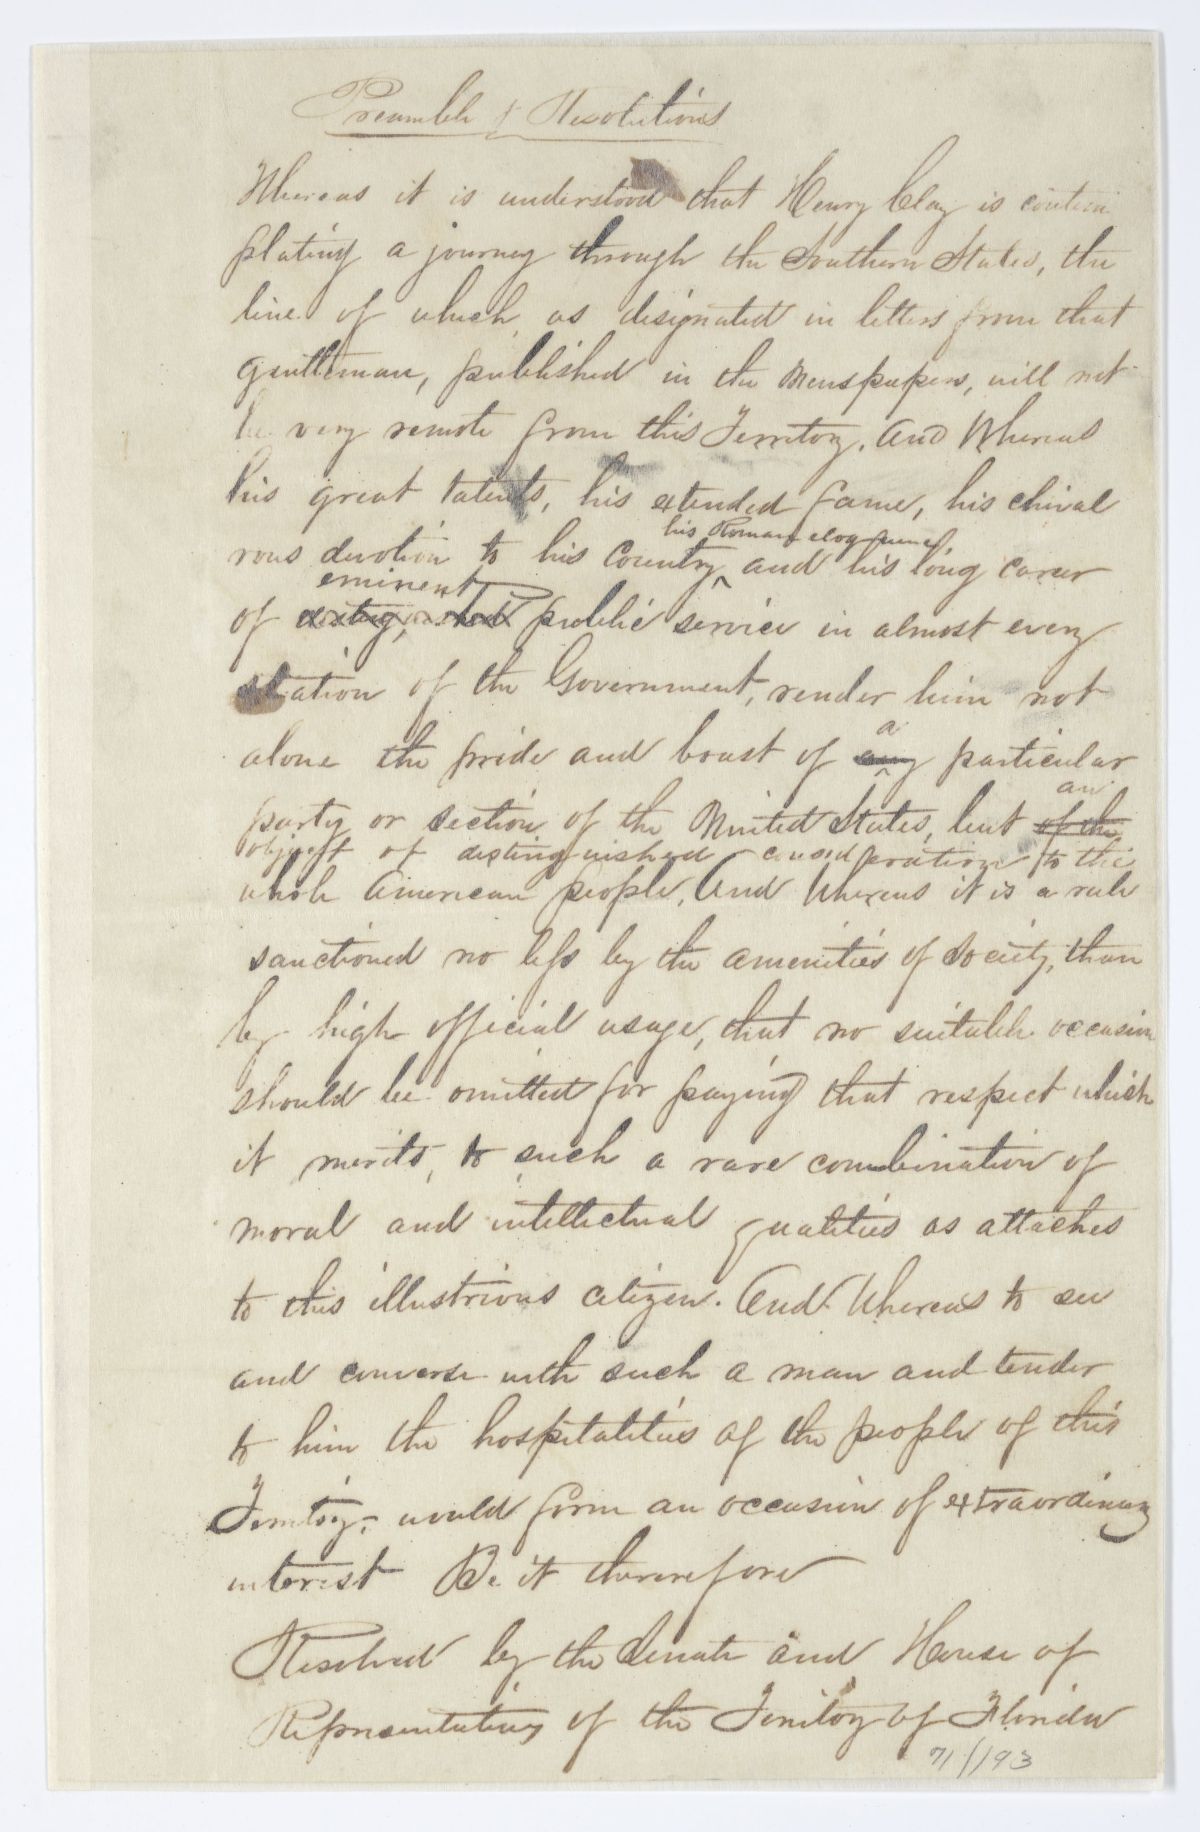 Preamble & Resolutions
Whereas it is understood that Henry Clay is contem
plating a journey through the Southern States, the
line of which, as designated in letters from that
gentleman, published in the Newspapers, will not
be very remote from this Territory. And Whereas
his great talents, his extended fame, his chival
his Roman eloquence
rous devotion to his Country ^ and his long career
eminent
of distinguished public service in almost every
station of the Government, render him not
a
alone the pride and boast of any particular
an
party or section of the United States, but of the
object of distinguished consideration to the
whole American people. And Whereas it is a rule
sanctioned no less by the amenities of Society, than
by high official usage, that no suitable occasion
should be omitted for paying that respect which
it merits, to such a rare combination of
moral and intellectual qualities as attaches
to this illustrious citizen. And Whereas to see
and converse with such a man and tender
to him the hospitalities of the people of this
Territory, would form an occasion of extraordinary
interest Be it therefore
Resolved by the Senate and House of
Representatives of the Territory of Florida
71/193